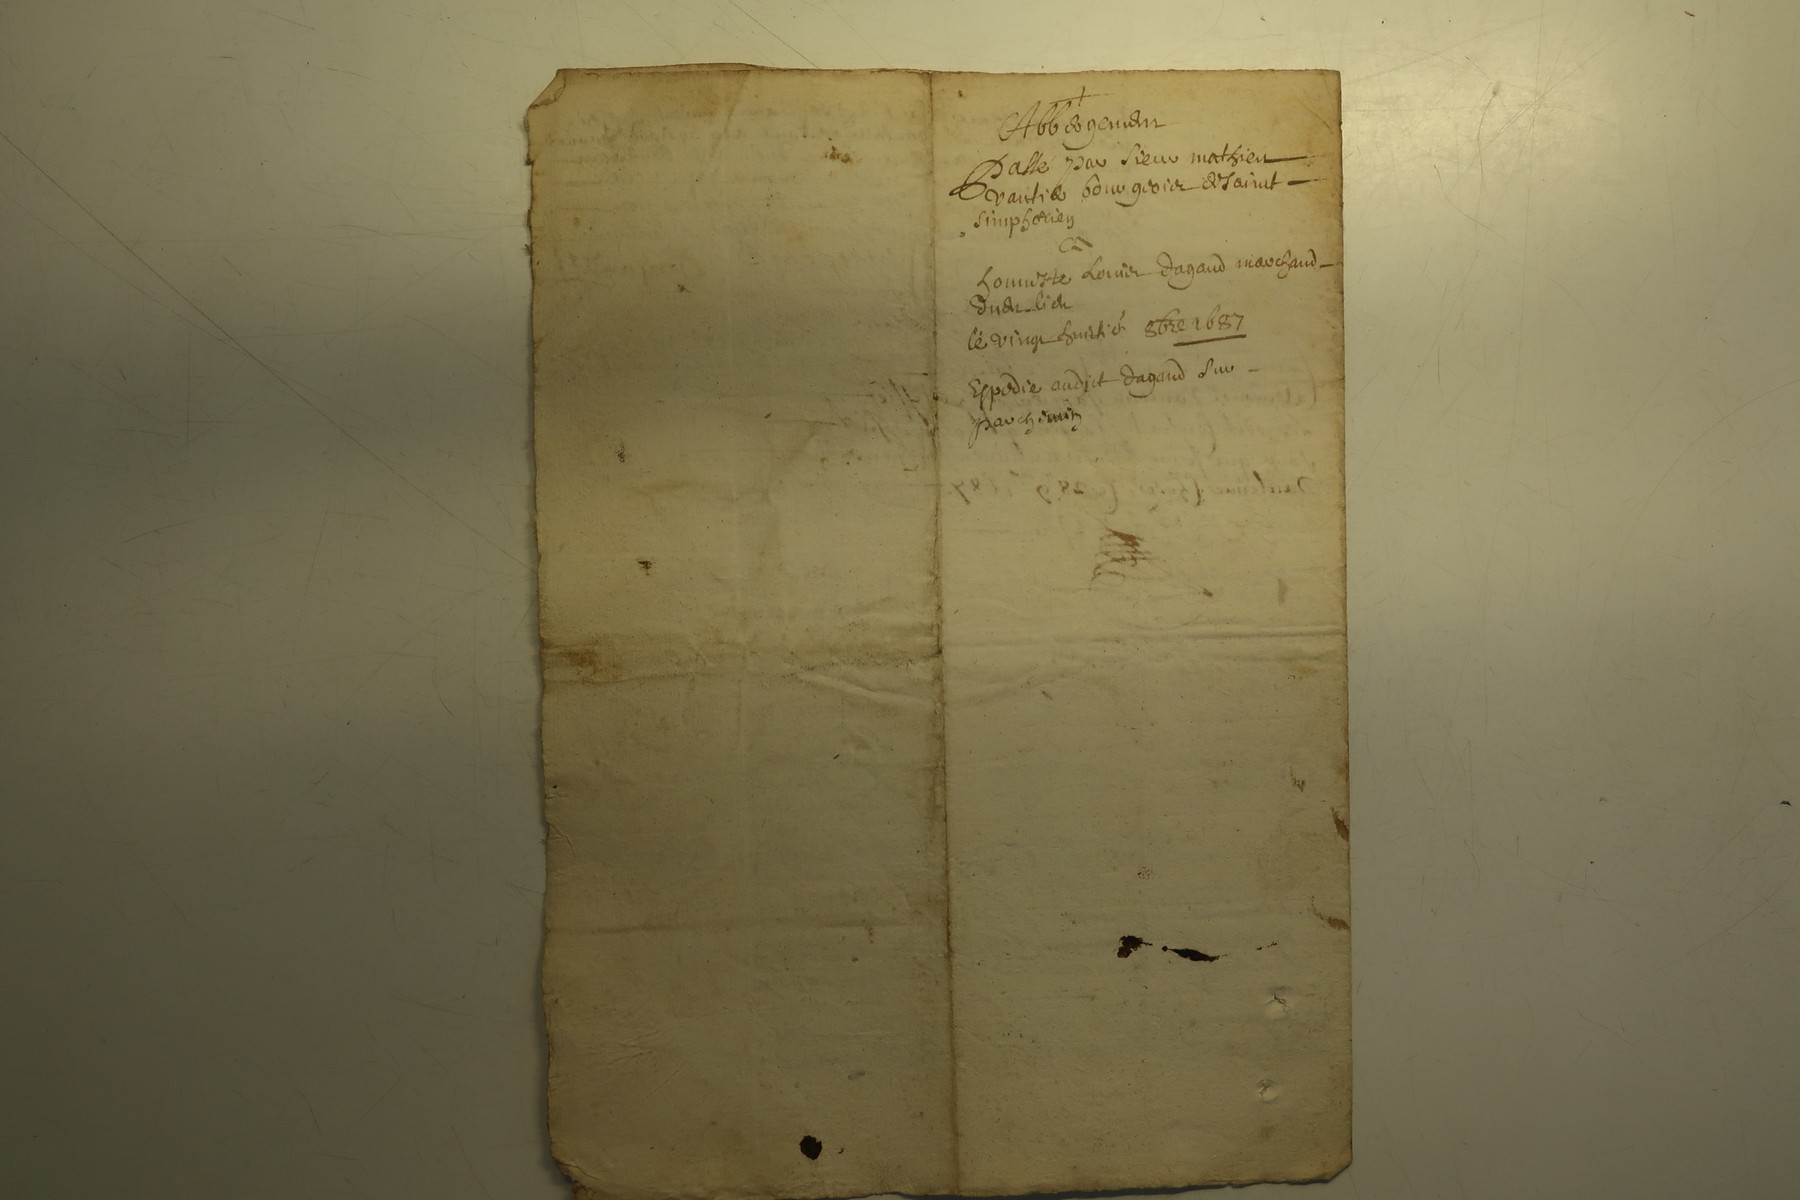 Abbergement
Passé par sieur mathieu
bourgeois de saint
simphorien
a
honneste Louis dagand marchand
dudit lieu
le vingt huitie 8bre 1687
Expedie audict dagand sur
parchemin